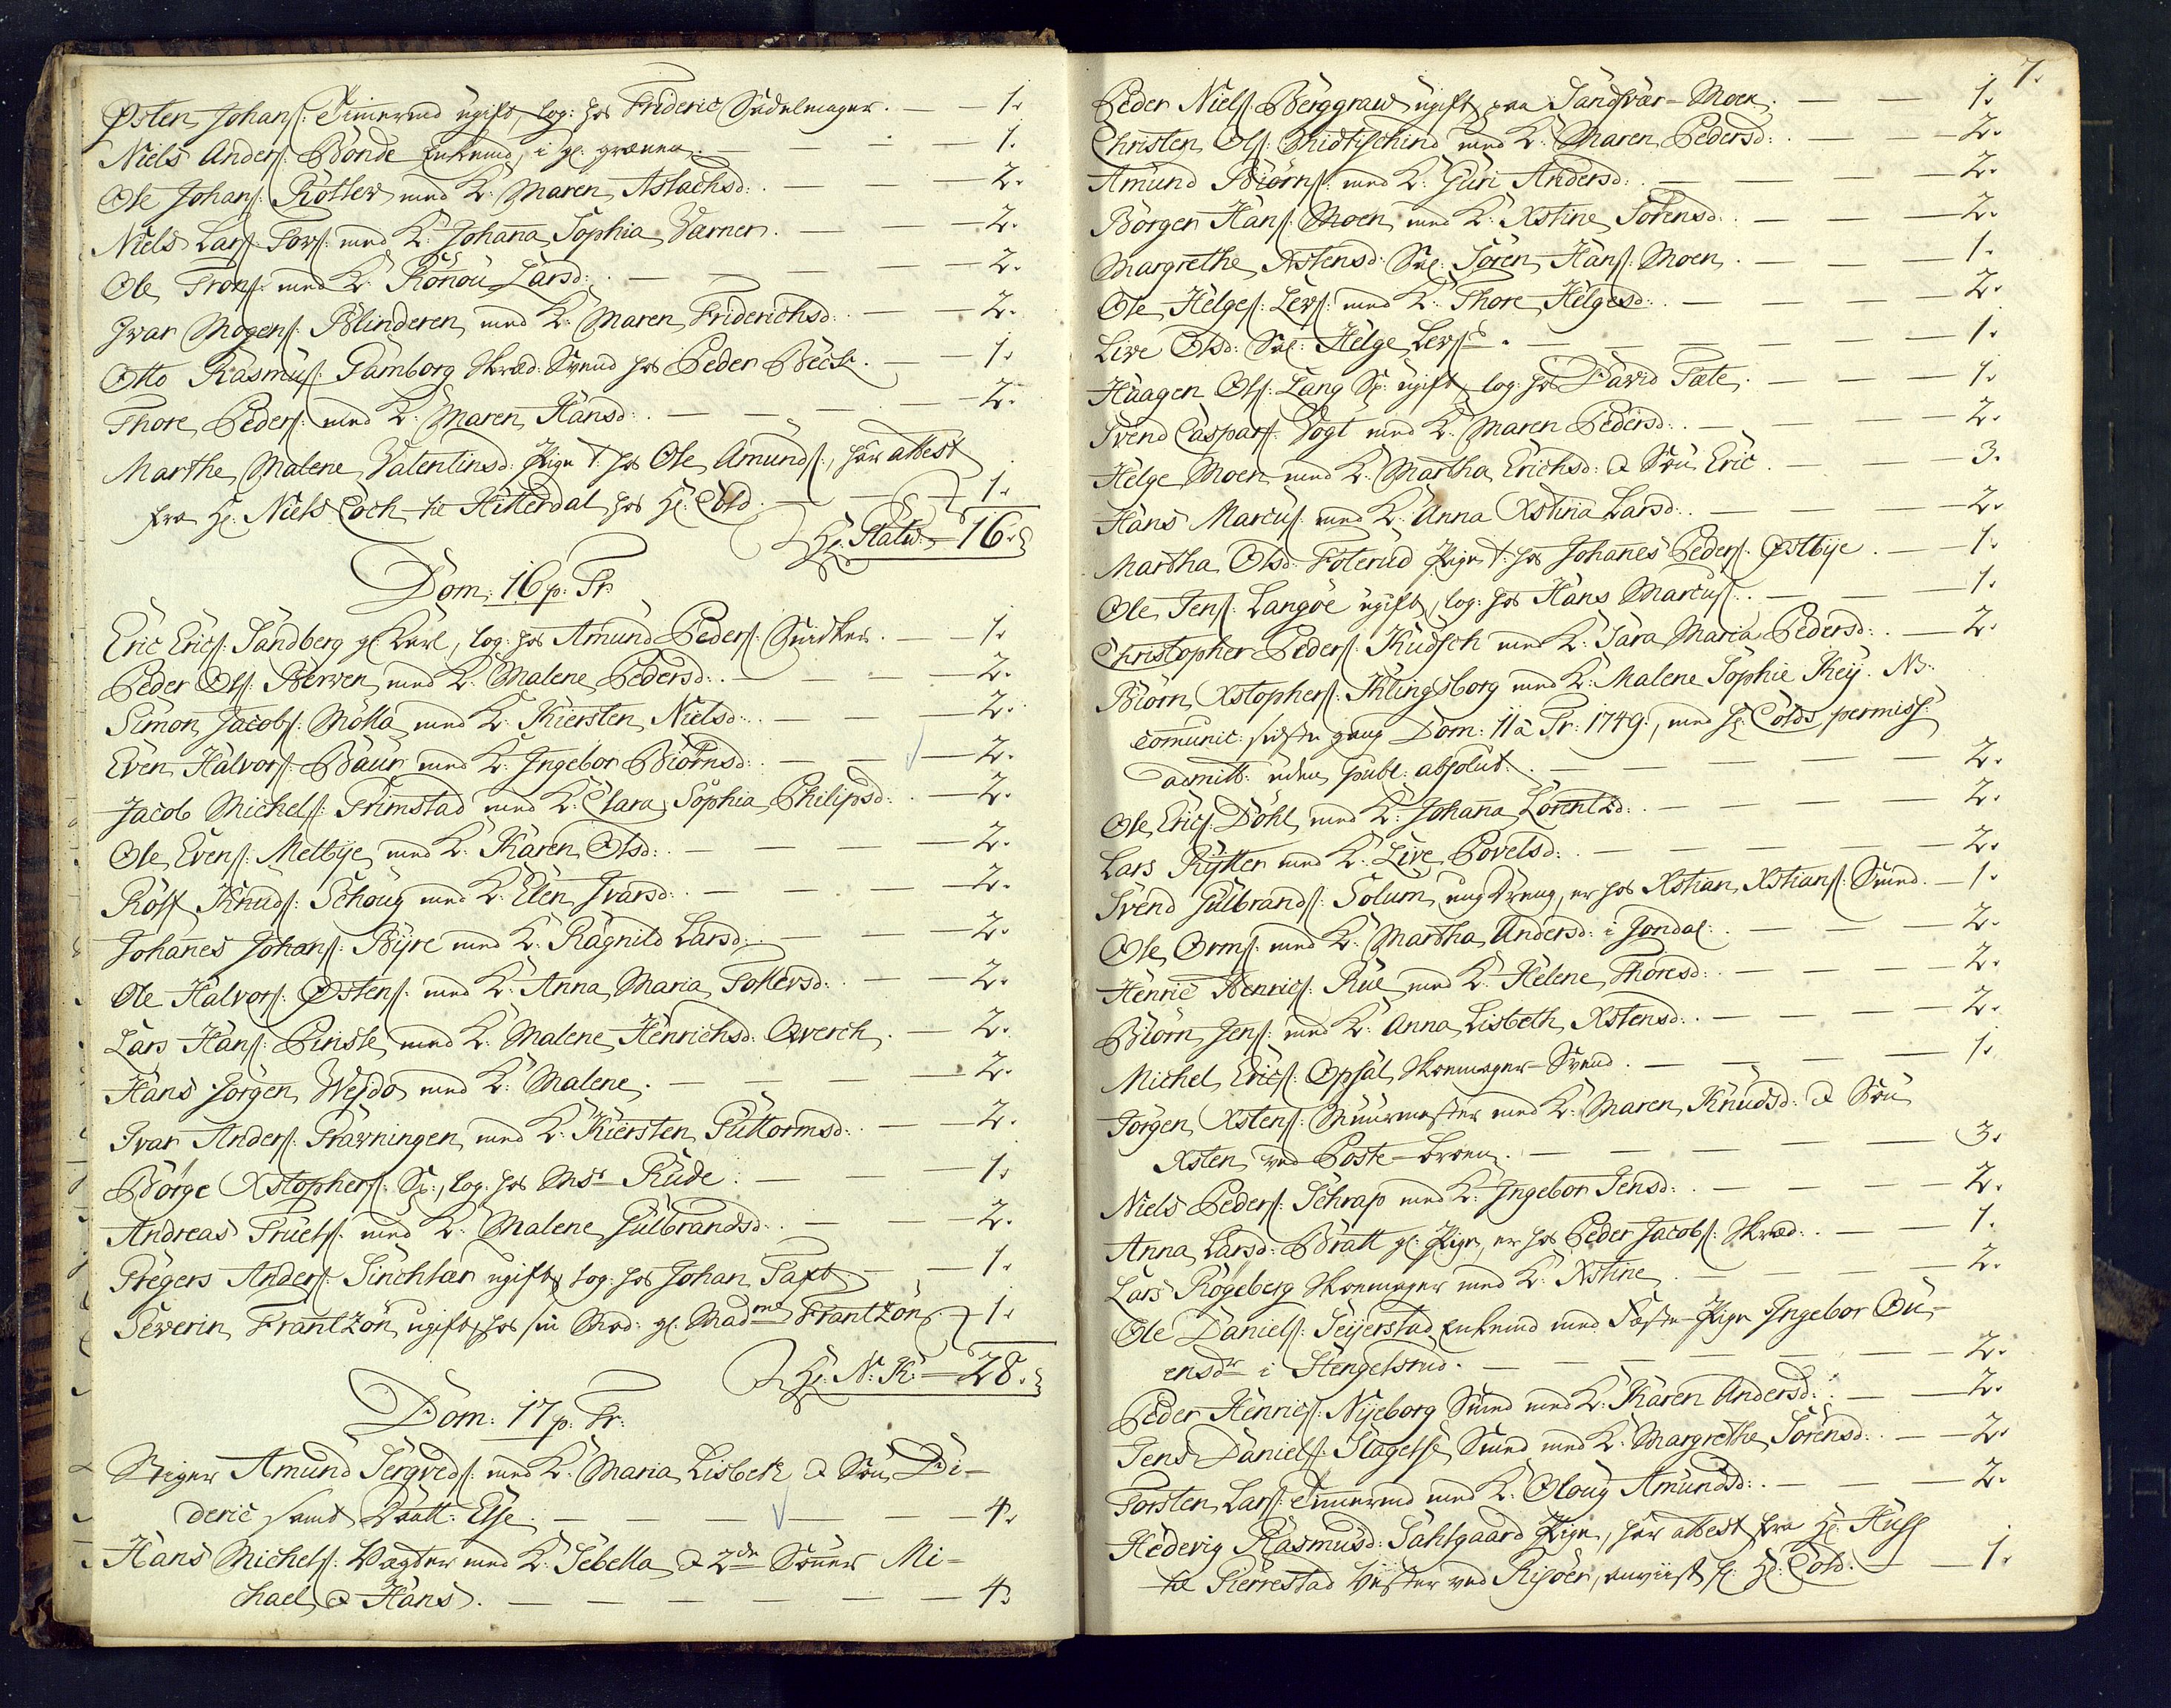 Østen Johanſ: Timermd ugift, log: hos Frideric Sadelmager. — — 1.
Niels Anderſ: Bonde Enkemd, i gl. grænen. — — — 1.
Ole Johanſ: Rotter med K: Maren Aslachsd: . — — — 2.
Niels Larſ: Torſ: med K: Johana Sophia Værner. — — — 2.
Ole Tronſ: med K: Ronou Larsd: . — — — 2.
Ivar Mogenſ: Blinderen med K: Maren Friderichsd: . — — 2.
Otto Rasmuſ: Gamborg Skræd: Svend hos Peder Beck. — — 1.
Thore Pederſ: med K: Maren Hansd: . — — — 2.
Marthe Malene Valentinsd: Pige t: hos Ole Amundſ:, har attest
fra Hr. Niels Coch til Hitterdal hos Hr: Cold. — — 1.
Hr. Statv: — 16.
Dom: 16 p: Tr:
Eric Ericſ: Sandberg gl: Karl, log: hos Amund Pederſ: Snidker. — 1.
Peder Olſ: Berven med K: Malene Pedersd: . — — — 2.
Simon Jacobſ: Molla med K: Kiersten Nielsd: . — — — 2.
Even Halvorſ: Baur med K: Ingebor Biørnsd: . — — — 2.
Jacob Michelſ: Trimstad med K: Clara Sophia Philipsd: . — 2.
Ole Evenſ: Melbye med K: Karen Olsd: . — — — 2.
Rolf Knudſ: Schoug med K: Elen Ivarsd: . — — — 2.
Johanes Johanſ: Byre med K: Ragnild Larsd: . — — — 2.
Ole Halvorſ: Østenſ: med K: Anna Maria Tollevsd: . — — 2.
Lars Hanſ: Pinsle med K: Malene Henrichsd: Qverch. — 2.
Hans Jörgen Wesdo med K: Malene. — — — 2.
Ivar Anderſ: Gravningen med K: Kiersten Guttormsd: . — — 2.
Børge Xstopherſ: Sp:, log: hos Msr Rude. — — — 1.
Andreas Truelſ: med K: Malene Gulbrandsd: . — — — 2.
Gregers Anderſ: Sinchlar ugift log: hos Johan Taft — — 1.
Severin Frantzøn ugift hos sin Mod: gl: Madme Frantzøn. 1.
Hr. N: K: — 28.
Dom: 17 p: Tr:
Stiger Amund Sergvedſ: med K: Maria Lisbeth & Søn Di-
deric samt Daatt: Else. — — — 4.
Hans Michelſ: Vægter med K: Sebella & 2de Sønner Mi-
chael & Hans. — — — 4.
7.
Peder Nielſ: Berggraw ugift paa Sandsvær-Moen. — — 1.
Christen Olſ: Midtischind med K: Maren Pedersd: . — — 2.
Amund Biørnſ: med K: Guri Andersd: . — — — 2.
Børger Hanſ: Moen med K: Xstine Sørensd: . — — — 2.
Margrethe Xstensd: Sal: Søren Hanſ: Moen. — — — 1.
Ole Helgeſ: Levſ: med K: Thore Helgesd: . — — — 2.
Live Olsd: Sal: Helge Levſes. — — — 1.
Haagen Olſ: Lang Sp: ugift, log: hos David Tæte. — — 1.
Svend Casparſ: Vogt med K: Maren Pedersd: . — — — 2.
Helge Moen med K: Martha Erichsd: & Søn Eric. — — 3.
Hans Marcuſ: med K: Anna Xstina Larsd: . — — — 2.
Martha Olsd: Foterud Pige t: hos Johanes Pederſ: Østbye. — 1.
Ole Jenſ: Langøe ugift, log: hos Hans Marcuſ: . — — 1.
Christopher Pederſ: Kudsch med K: Sara Maria Pedersd: . — 2.
Biørn Xstopherſ: Khlingsborg med K: Malene Sophie Key. NB:
comunic: sidste gang Dom: 11 a Tr: 1749, med Hr: Colds permiss:
admitt: uden publ: absolut: . — — — 2.
Ole Ericſ: Dohl med K: Johana Lorentzd: . — — — 2.
Lars Rytter med K: Live Povelsd: . — — — 2.
Svend Gulbrandſ: Solum, ung dreng, er hos Xstian Xstianſ: Smed. — 1.
Ole Ormſ: med K: Martha Andersd: i Jondal. — — — 2.
Henric Henricſ: Rue med K: Helene Thoresd: . — — — 2.
Biørn Jenſ: med K: Anna Lisbeth Xstensd: . — — — 2.
Michel Ericſ: Opsal, Skomager-Svend. — — — 1.
Jørgen Xstenſ: Muurmester med K: Maren Knudsd: & Søn
Xsten ved Poste-broen. — — — 3.
Niels Pederſ: Schrap med K: Ingebor Jensd: . — — — 2.
Anna Larsd: Bratt gl: Pige, er hos Peder Jacobſ: Skræd: . — — 1.
Lars Rogeberg Skomager med K: Xstine. — — — 2.
Ole Danielſ: Seyerstad Enkemd med Fæste-Pige Ingebor Ou-
ensdr i Stengelsrud. — — — 2.
Peder Henricſ: Nyeborg Smed med K: Karen Andersd: . — — 2.
Jens Danielſ: Slagelse Smed med K: Margrethe Sørensd: . — — 2.
Torsten Larſ: Timermd med K: Oloug Amundsd: . — — 2.
Hedevig Rasmusd: Sahlgaard Pige, har attest fra Hr: Huss
til Gierrestad Vester ved Risøer, anviist fr: Hr: Cold. — — 1.